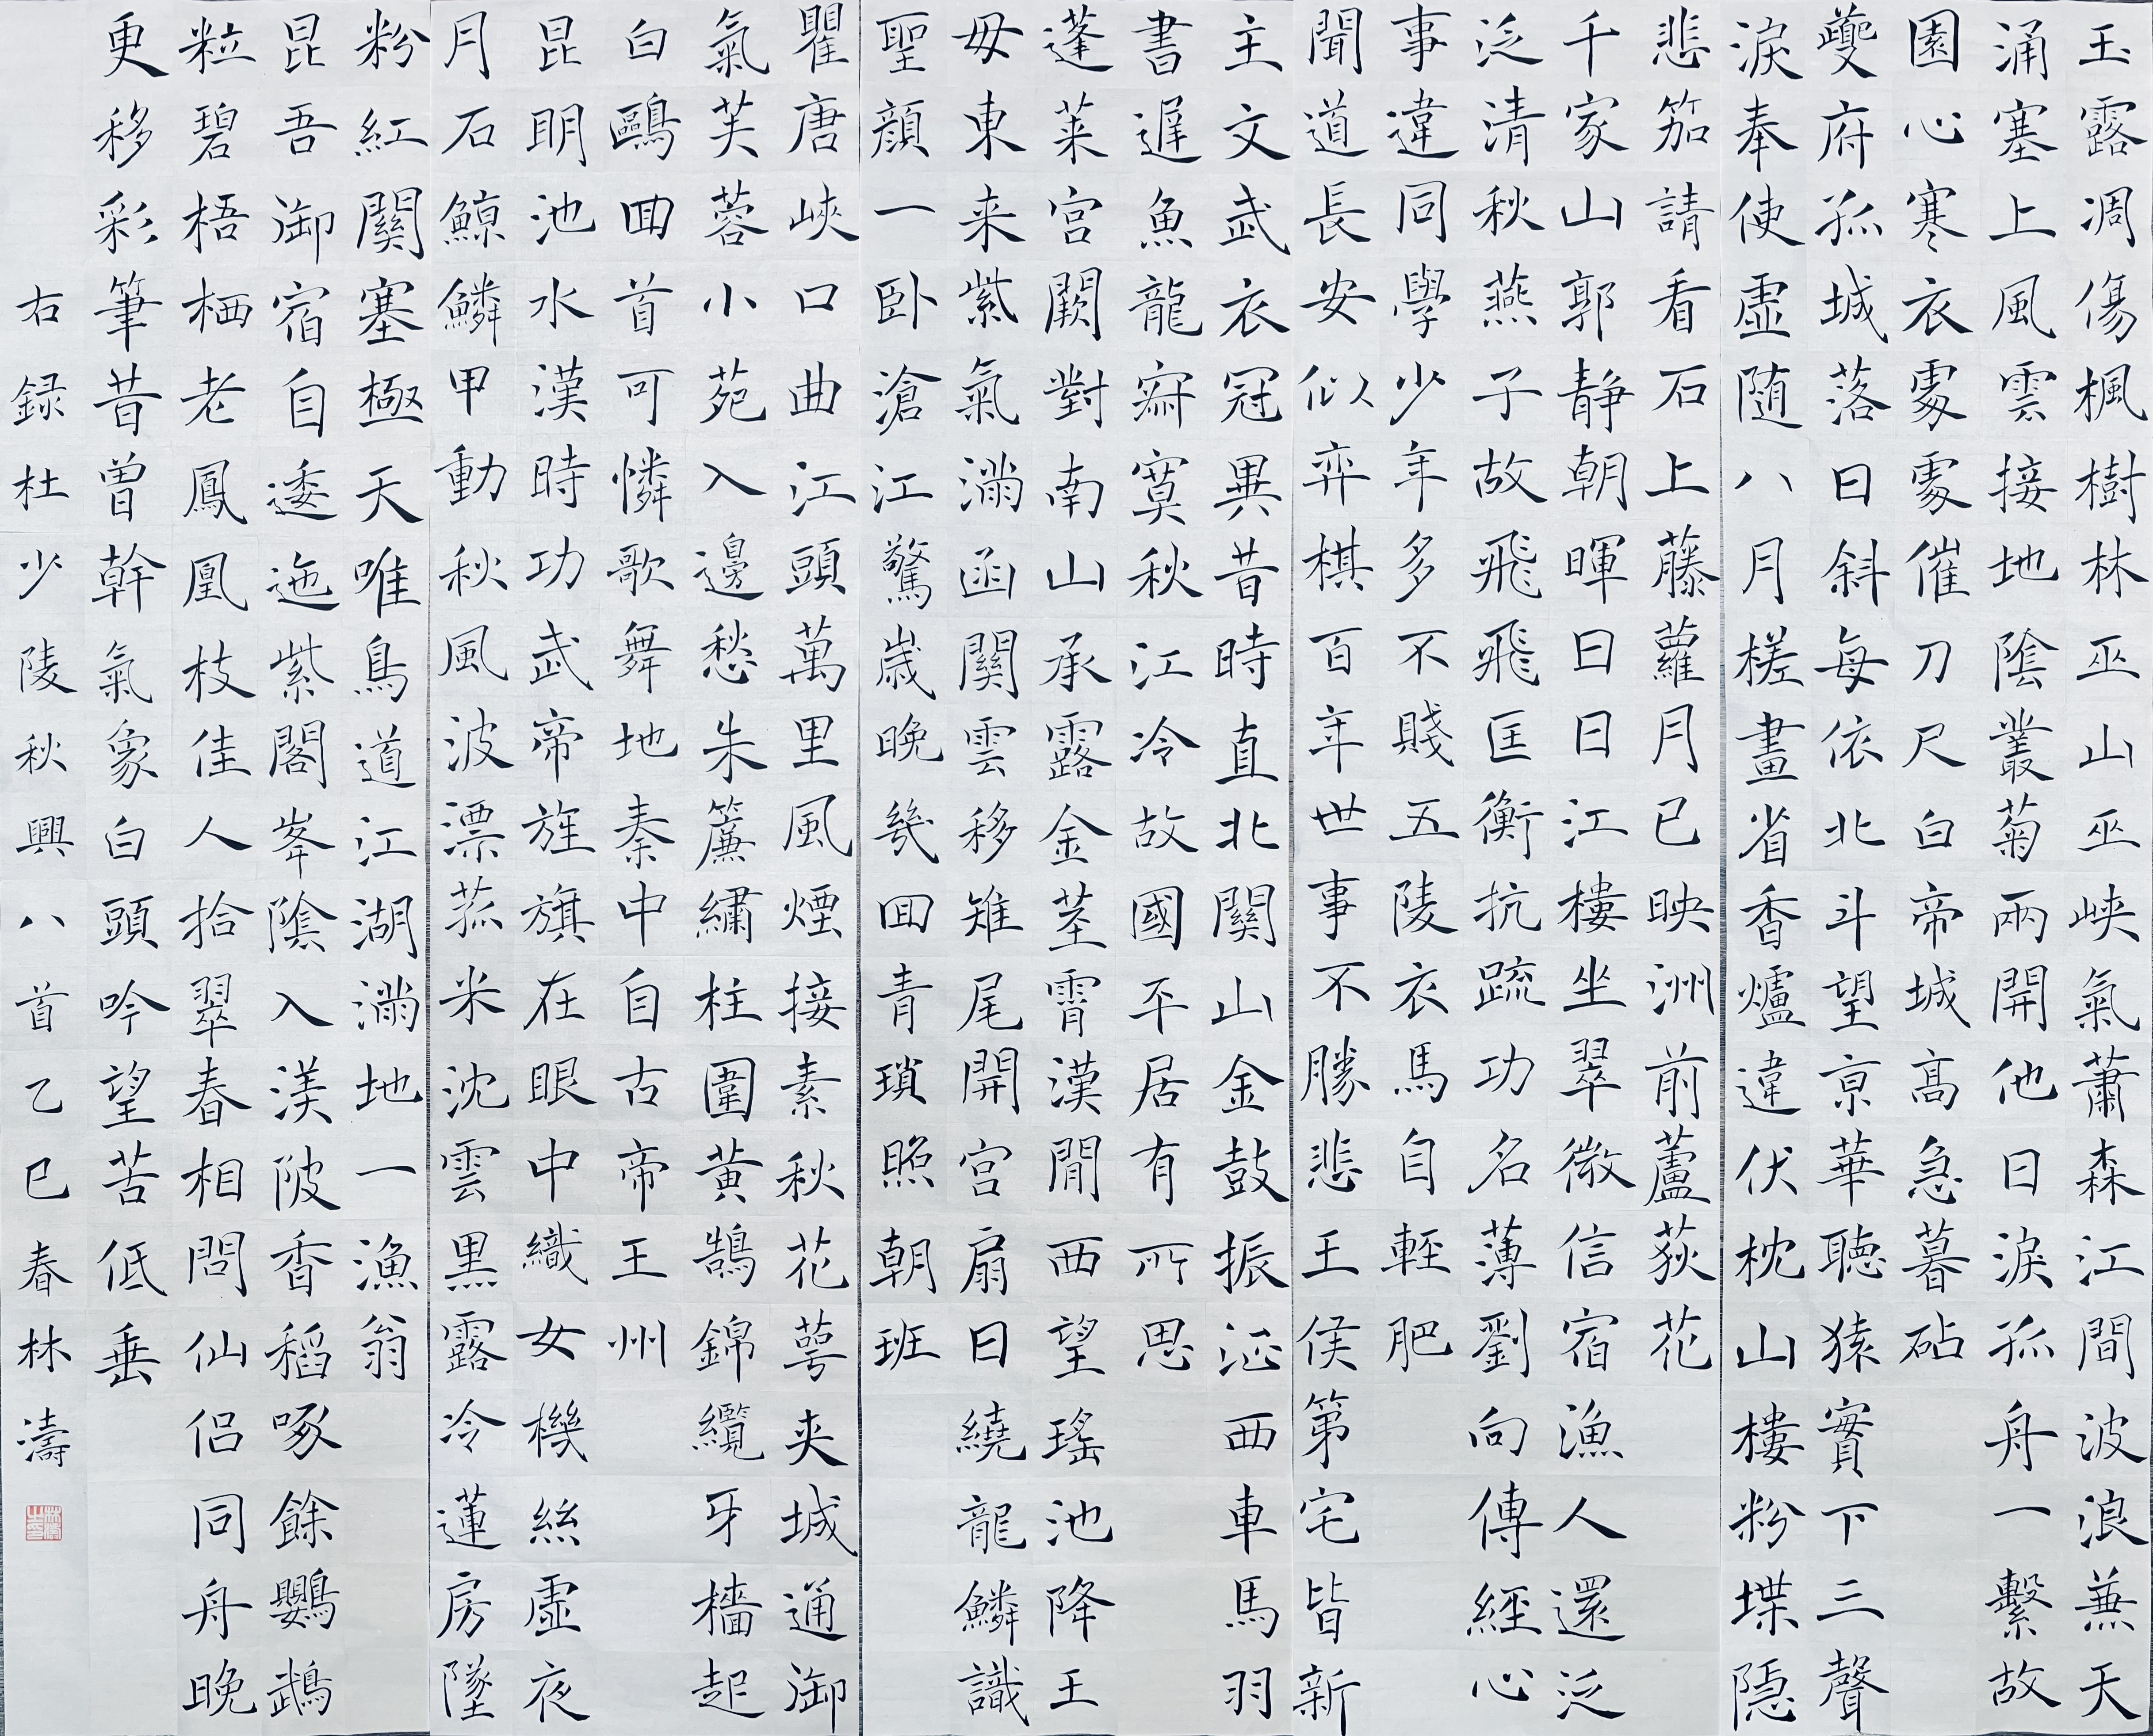 玉露凋傷楓樹林巫山巫峽氣蕭森江間波浪兼天
涌塞上風雲接地陰叢菊兩開他日淚孤舟一繫故
園心寒衣處處催刀尺白帝城高急暮砧
夔府孤城落日斜每依北斗望京華聽猿實下三聲
淚奉使虛随八月槎畫省香爐違伏枕山樓粉堞隱
悲笳請看石上藤蘿月已映洲前蘆荻花
千家山郭靜朝暉日日江樓坐翠微信宿漁人還泛
泛清秋燕子故飛飛匡衡抗疏功名薄劉向傳經心
事違同學少年多不賤五陵衣馬自輕肥
聞道長安似弈棋百年世事不勝悲王侯第宅皆新
主文武衣冠異昔時直北關山金鼓振征西車馬羽
書遲魚龍寂寞秋江冷故國平居有所思
蓬萊宮闕對南山承露金莖霄漢間西望瑤池降王
母東来紫氣滿函關雲移雉尾開宮扇日繞龍鱗識
聖顏一卧滄江驚歲晚幾回青瑣照朝班
瞿唐峽口曲江頭萬里風煙接素秋花萼夾城通御
氣芙蓉小苑入邊愁朱簾繡柱圍黃鵠錦纜牙檣起
白鷗回首可憐歌舞地秦中自古帝王州
昆明池水漢時功武帝旌旗在眼中織女機絲虛夜
月石鯨鱗甲動秋風波漂菰米沈雲黑露冷蓮房墜
粉紅關塞極天唯鳥道江湖滿地一漁翁
昆吾御宿自逶迤紫閣峯陰入渼陂香稻啄餘鸚鵡
粒碧梧栖老鳳凰枝佳人拾翠春相問仙侶同舟晚
更移彩筆昔曾幹氣象白頭吟望苦低垂
右録杜少陵秋興八首乙巳春林濤
林濤之印